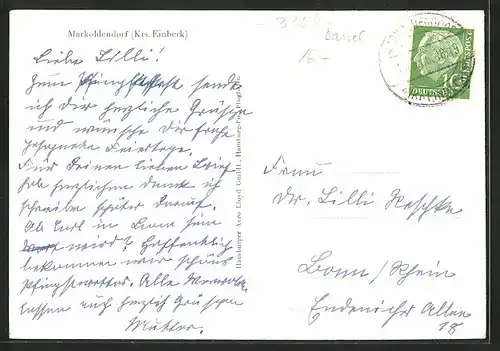 Markoldendorf (Krs. Einbeck)
Liebe Lilli!
Zum Pfingstfest sende
ich dir herzliche Grüsse
und wünsche dir frohe
gesegnete Feiertage.
Für Deinen lieben Brief
hab herzlichen Dank ich
schreibe später darauf.
Ob Carl in Bonn sein
wird? Hoffentlich
bekommen wir schönes
Pfingstwetter. Alle
lassen euch herzlich grüssen
Mutter.
Hamburger Aero Lloyd GmbH., Hamburg-
3350
Dassel
16-
10
DEUTSCHE BUNDESPOST
Frau
Dr. Lilli Reschke
Bonn/Rhein
Endenicher Allee
18